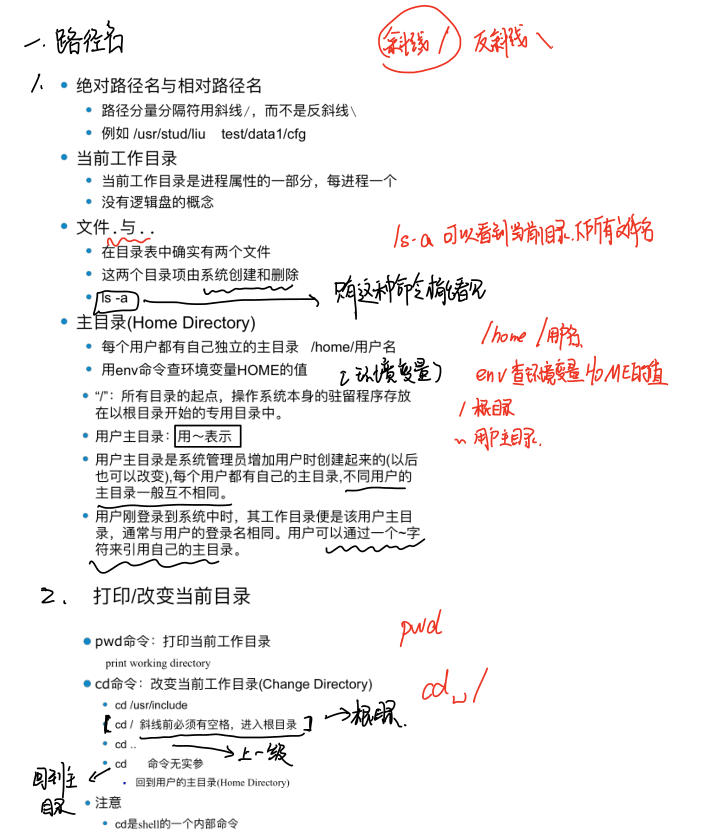 一. 路径名
斜线 / 反斜线 \
1. 绝对路径名与相对路径名
路径分量分隔符用斜线/，而不是反斜线\
例如 /usr/stud/liu test/data1/cfg
当前工作目录
当前工作目录是进程属性的一部分，每进程一个
没有逻辑盘的概念
文件.与..
ls -a 可以看到当前目录下所有文件名
在目录表中确实有两个文件
这两个目录项由系统创建和删除
ls -a 只有这种命令才能看见
主目录(Home Directory)
/home /用户名
每个用户都有自己独立的主目录 /home/用户名
用env命令查环境变量HOME的值 (环境变量)
env 查环境变量 HOME的值
“/”：所有目录的起点，操作系统本身的驻留程序存放
在以根目录开始的专用目录中。
/ 根目录
用户主目录：用～表示
~ 用户主目录.
用户主目录是系统管理员增加用户时创建起来的(以后
也可以改变),每个用户都有自己的主目录,不同用户的
主目录一般互不相同。
用户刚登录到系统中时，其工作目录便是该用户主目
录，通常与用户的登录名相同。用户可以通过一个~字
符来引用自己的主目录。
2. 打印/改变当前目录
pwd命令：打印当前工作目录
pwd
print working directory
cd命令：改变当前工作目录(Change Directory)
cd␣/
cd /usr/include
[cd / 斜线前必须有空格，进入根目录] 根目录.
cd .. 上一级
cd 命令无实参
回到主
目录
回到用户的主目录(Home Directory)
注意
cd是shell的一个内部命令